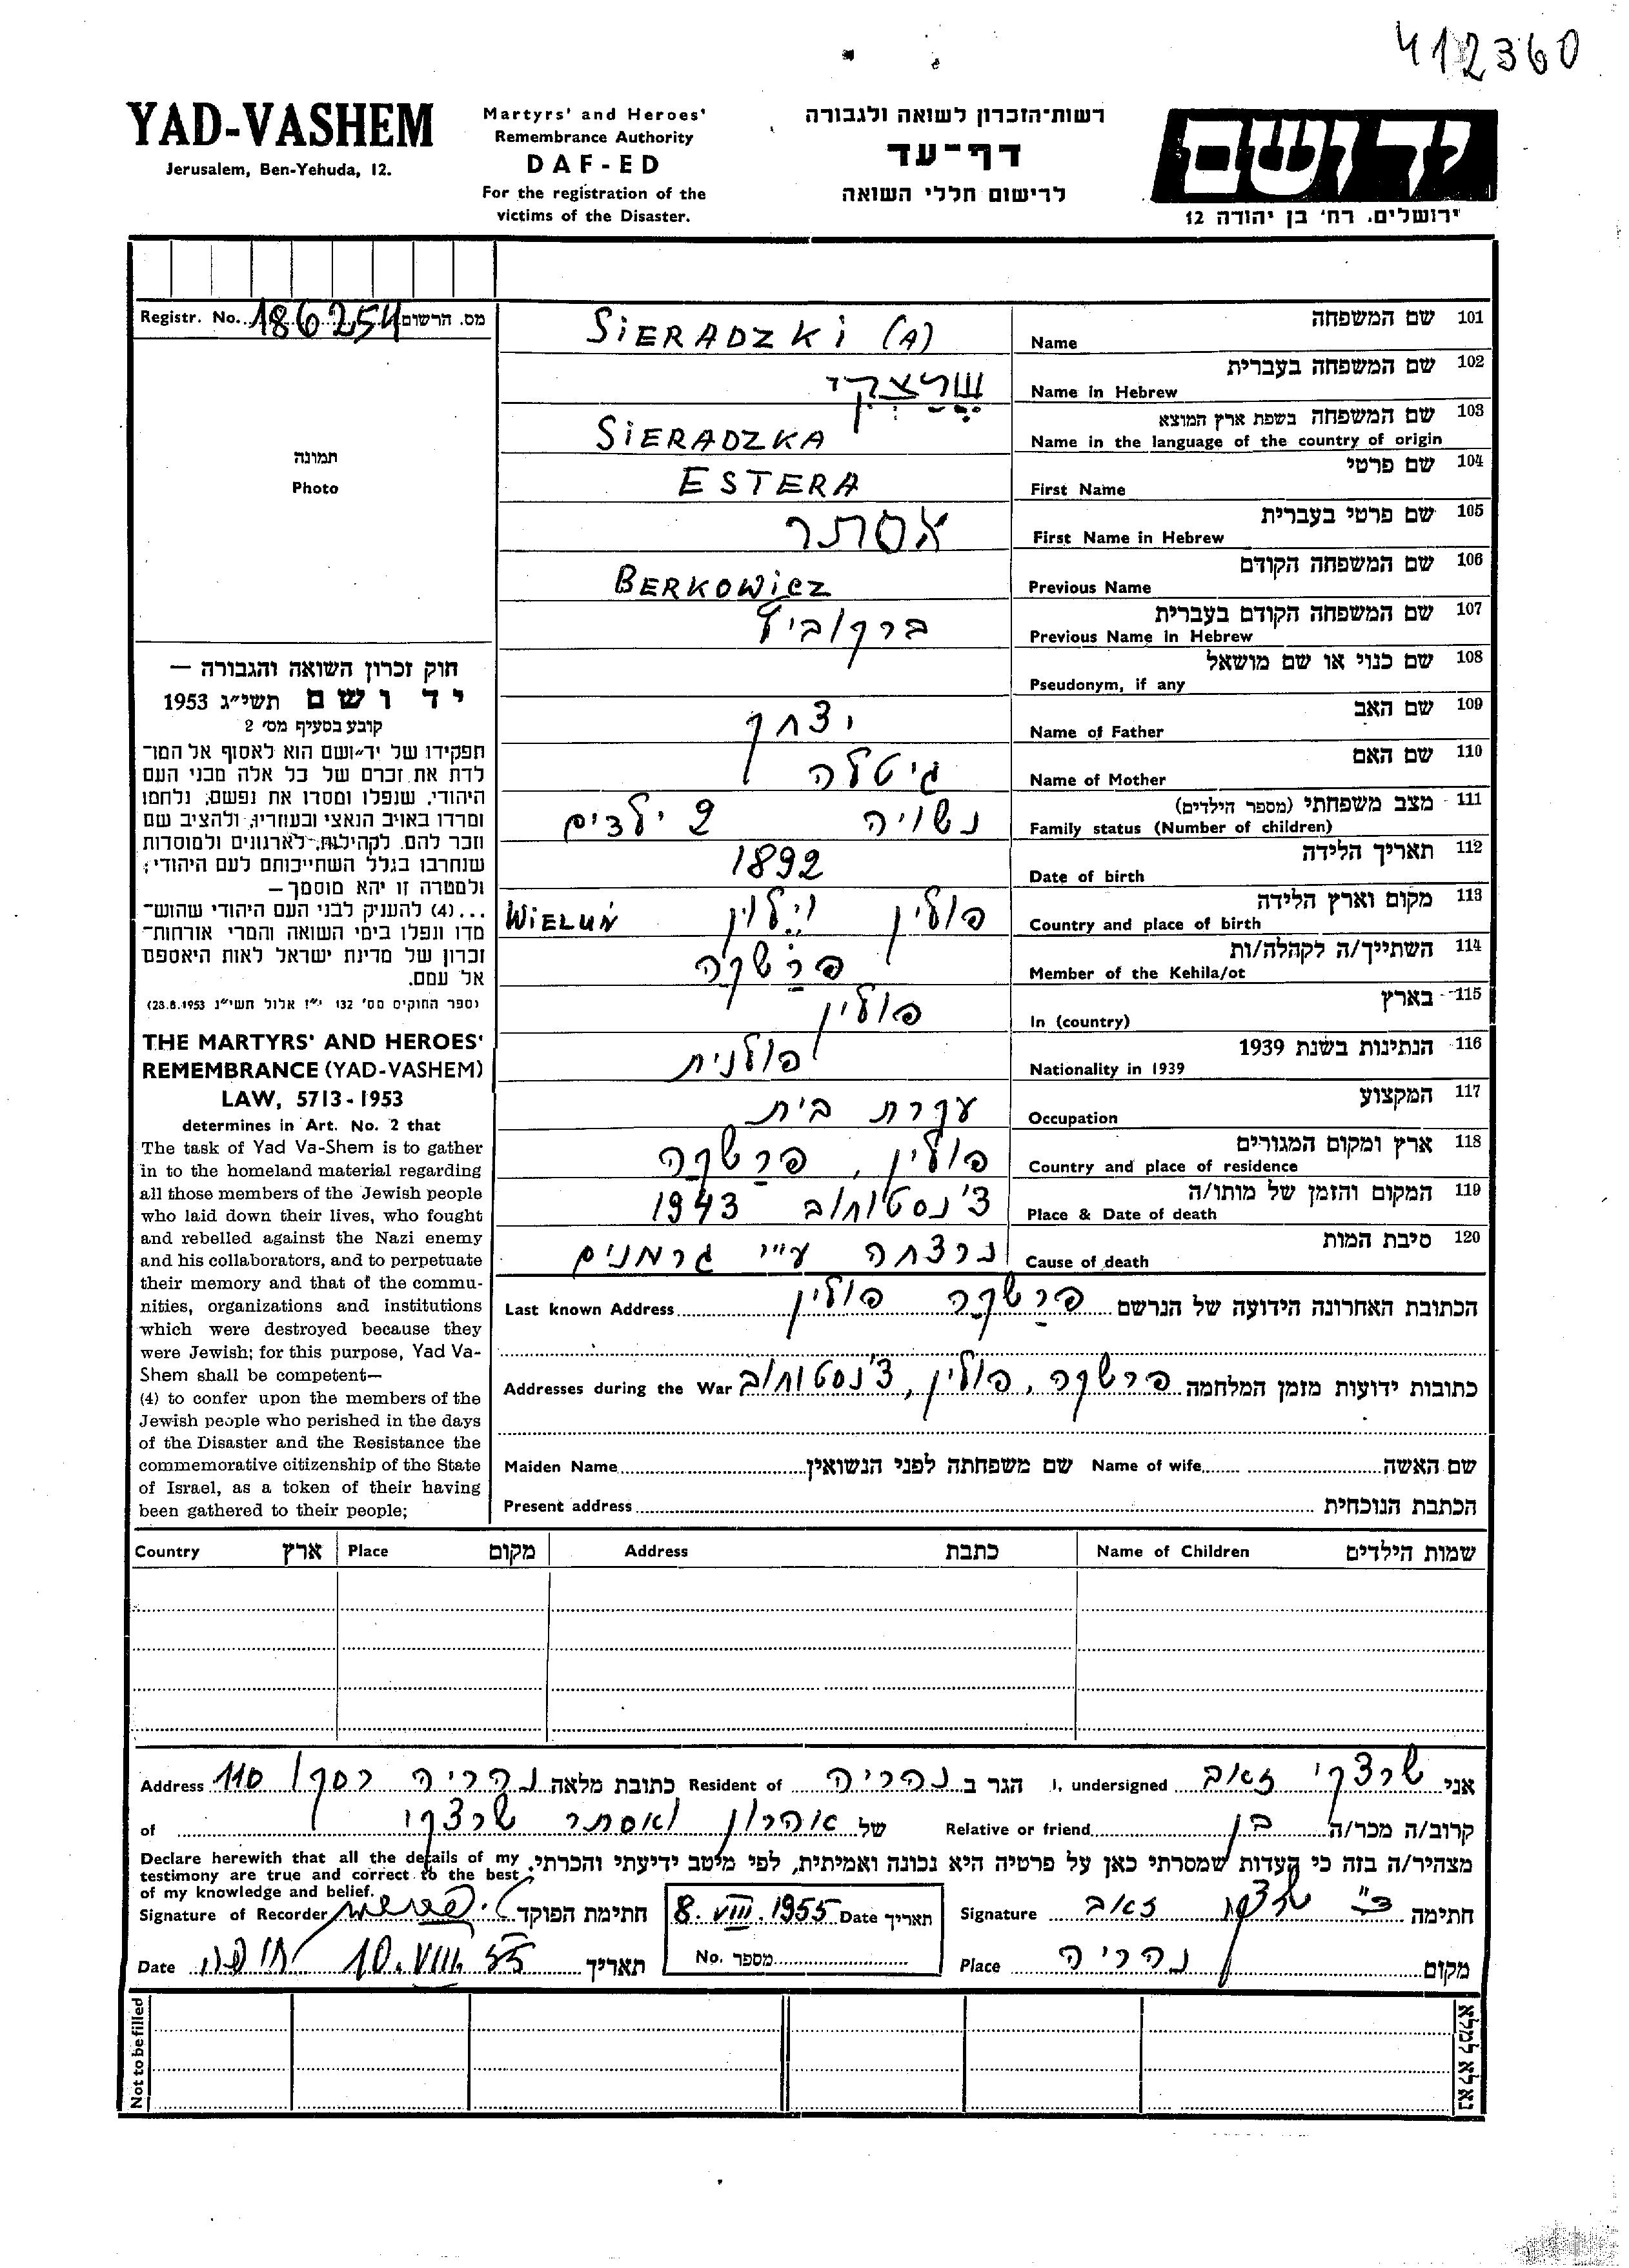 412360
YAD-VASHEM
Jerusalem, Ben-Yehuda, 12.
Martyrs' and Heroes'
Remembrance Authority
DAF-ED
For the registration of the
victims of the Disaster.
רשות־הזכרון לשואה ולגבורה
דף־עד
לרישום חללי השואה
יד ושם
ירושלים. רח' בן יהודה 12
Registr. No. 186254 מס. הרשום
תמונה
Photo
SiERADZKi (A) Name שם המשפחה 101
שֶׂרַצְקִי Name in Hebrew שם המשפחה בעברית 102
SiERADZKA Name in the language of the country of origin שם המשפחה בשפת ארץ המוצא 103
ESTERA First Name שם פרטי 104
אסתר First Name in Hebrew שם פרטי בעברית 105
BERKOWicz Previous Name שם המשפחה הקודם 106
ברקוביץ Previous Name in Hebrew שם המשפחה הקודם בעברית 107
Pseudonym, if any שם כנוי או שם מושאל 108
יצחק Name of Father שם האב 109
גיטלה Name of Mother שם האם 110
נשויה 2 ילדים Family status (Number of children) מצב משפחתי (מספר הילדים) 111
1892 Date of birth תאריך הלידה 112
פולין וילון WiELUŃ Country and place of birth מקום וארץ הלידה 113
פרשקה Member of the Kehila/ot השתייך/ה לקהלה/ות 114
פולין In (country) בארץ 115
פולנית Nationality in 1939 הנתינות בשנת 1939 116
עקרת בית Occupation המקצוע 117
פולין, פרשקה Country and place of residence ארץ ומקום המגורים 118
צ'נסטוחוב 1943 Place & Date of death המקום והזמן של מותו/ה 119
נרצחה ע"י גרמנים Cause of death סיבת המות 120
חוק זכרון השואה והגבורה —
יד ושם תשי״ג 1953
קובע בסעיף מס' 2
תפקידו של יד־ושם הוא לאסוף אל המו־
לדת את זכרם של כל אלה מבני העם
היהודי, שנפלו ומסרו את נפשם, נלחמו
ומרדו באויב הנאצי ובעוזריו, ולהציב שם
וזכר להם, לקהילות, לארגונים ולמוסדות
שנחרבו בגלל השתייכותם לעם היהודי;
ולמטרה זו יהא מוסמך —
...(4) להעניק לבני העם היהודי שהוש־
מדו ונפלו בימי השואה והמרי אזרחות־
זכרון של מדינת ישראל לאות היאספם
אל עמם.
(ספר החוקים מס' 132 י״ז אלול תשי״ג 28.8.1953)
THE MARTYRS' AND HEROES'
REMEMBRANCE (YAD-VASHEM)
LAW, 5713-1953
determines in Art. No. 2 that
The task of Yad Va-Shem is to gather
in to the homeland material regarding
all those members of the Jewish people
who laid down their lives, who fought
and rebelled against the Nazi enemy
and his collaborators, and to perpetuate
their memory and that of the commu-
nities, organizations and institutions
which were destroyed because they
were Jewish; for this purpose, Yad Va-
Shem shall be competent—
(4) to confer upon the members of the
Jewish people who perished in the days
of the Disaster and the Resistance the
commemorative citizenship of the State
of Israel, as a token of their having
been gathered to their people;
הכתובת האחרונה הידועה של הנרשם פרשקה פולין Last known Address
כתובות ידועות מזמן המלחמה פרשקה, פולין, צ'נסטוחוב Addresses during the War
שם האשה Name of wife שם משפחתה לפני הנשואין Maiden Name
הכתבת הנוכחית Present address
שמות הילדים Name of Children כתבת Address מקום Place ארץ Country
אני שרצקי זאב I, undersigned הגר ב נהריה Resident of כתובת מלאה נהריה רסקו 110 Address
קרוב/ה מכר/ה בן Relative or friend של אהרון ואסתר שרצקי of
מצהיר/ה בזה כי העדות שמסרתי כאן על פרטיה היא נכונה ואמיתית, לפי מיטב ידיעתי והכרתי.
Declare herewith that all the details of my
testimony are true and correct to the best
of my knowledge and belief.
חתימה שרצקי זאב Signature
תאריך Date 8. VIII. 1955
חתימת הפוקד Signature of Recorder
מקום נהריה Place
מספר No.
תאריך 10. VIII. 55 Date
Not to be filled
נא לא למלא